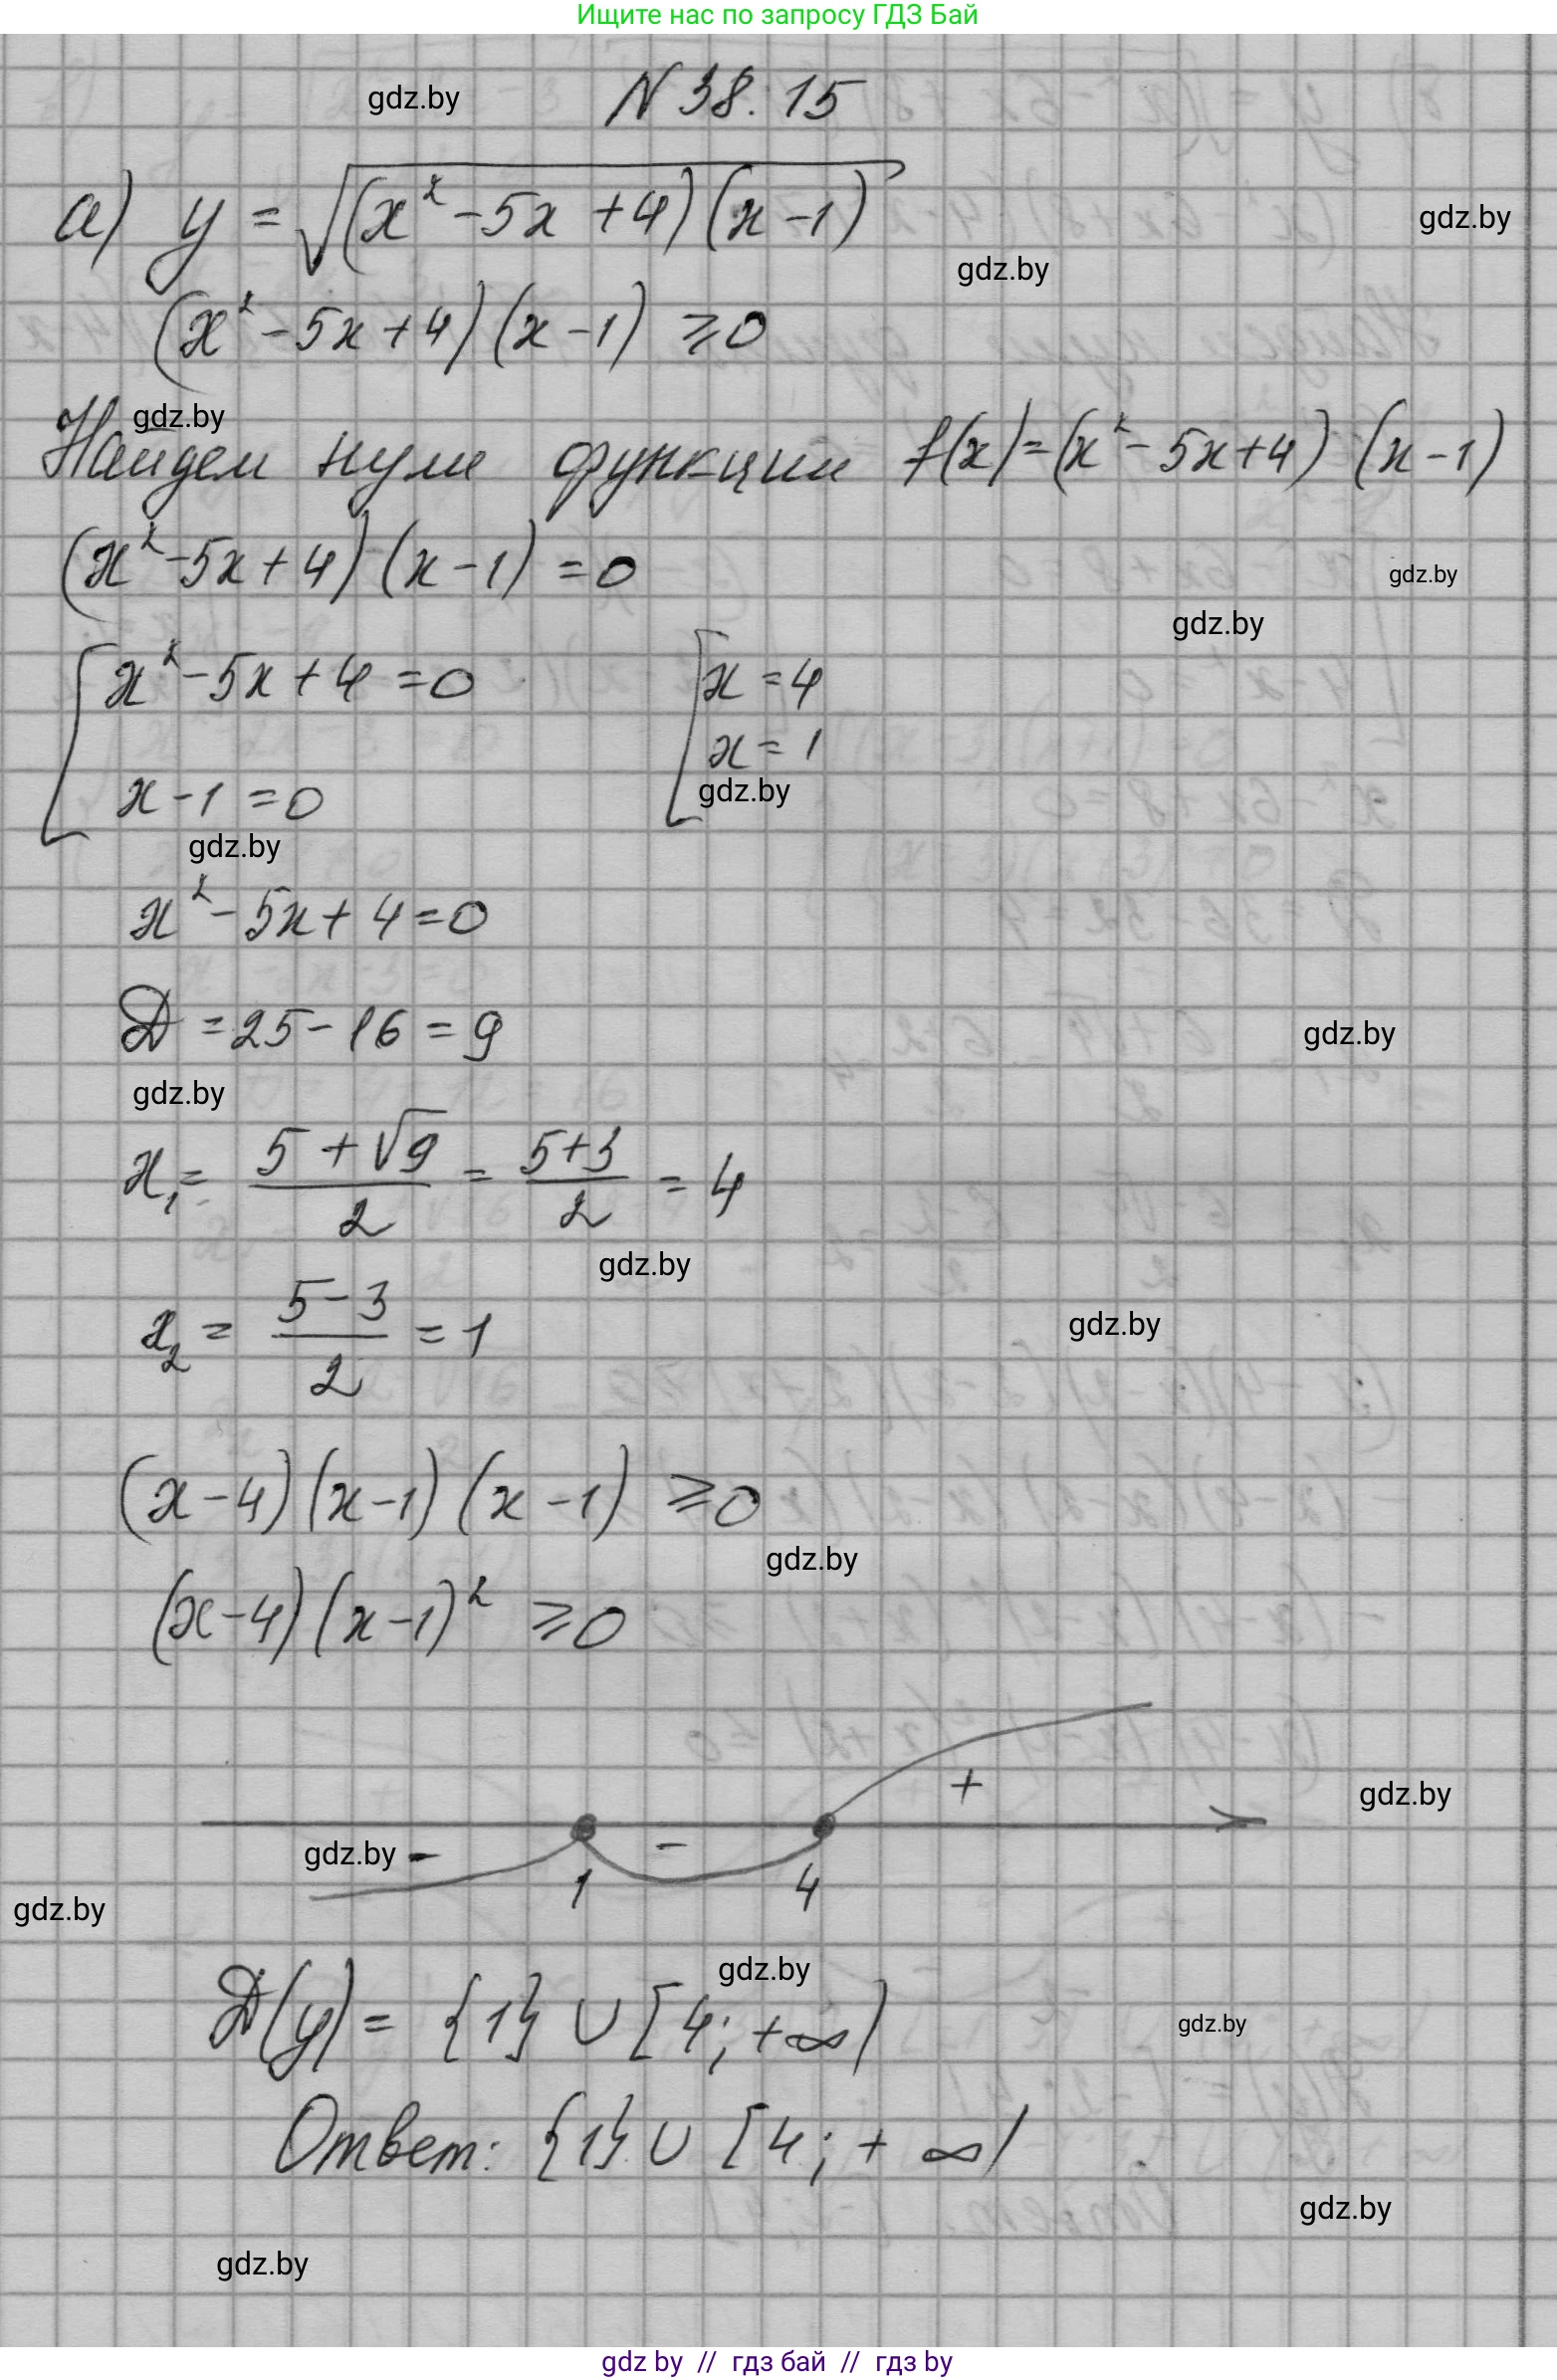 Ищите нас по запросу ГДЗ Бай
gdz.by
N 38.15
а) y = √((x² - 5x + 4)(x - 1))
gdz.by
gdz.by
(x² - 5x + 4)(x - 1) ≥ 0
gdz.by
Найдем нули функции f(x) = (x² - 5x + 4) (x - 1)
(x² - 5x + 4)(x - 1) = 0
gdz.by
gdz.by
[ x² - 5x + 4 = 0 [ x = 4
x = 1
x - 1 = 0
gdz.by
gdz.by
x² - 5x + 4 = 0
D = 25 - 16 = 9
gdz.by
gdz.by
x₁ = (5 + √9)/2 = (5+3)/2 = 4
gdz.by
x₂ = (5 - 3)/2 = 1
gdz.by
(x - 4)(x - 1)(x - 1) ≥ 0
gdz.by
(x - 4)(x - 1)² ≥ 0
+
gdz.by
gdz.by - -
1 4
gdz.by
gdz.by
D(y) = {1} ∪ [4; +∞)
gdz.by
Ответ: {1} ∪ [4; +∞)
gdz.by
gdz.by
gdz by // гдз бай // гдз by